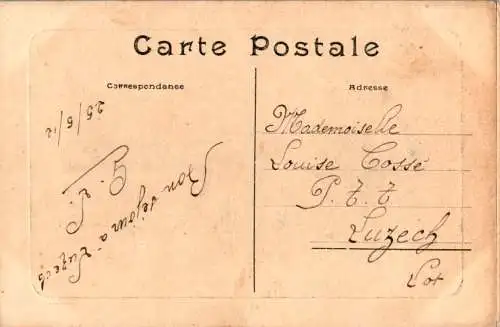 Carte Postale
Correspondance
Adresse
25/5/12
Bon séjour à Luzech
Mademoiselle
Louise Cossé
P. T. T
Luzech
Lot